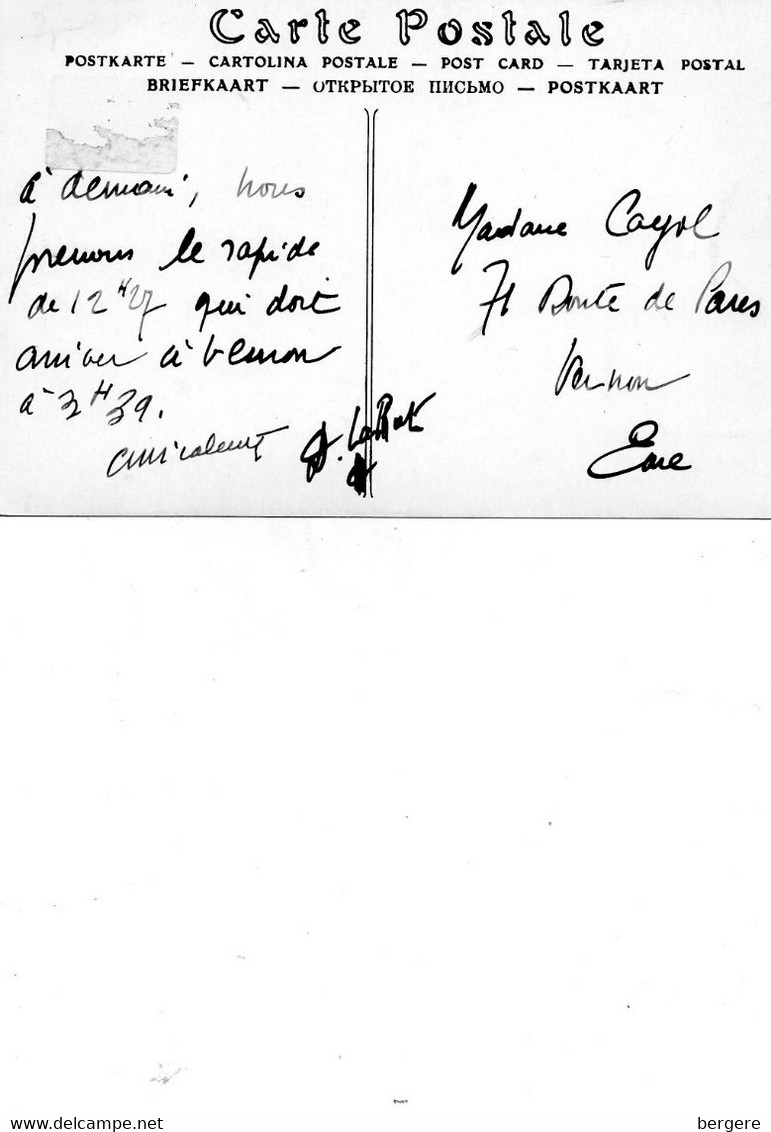 Carte Postale
POSTKARTE — CARTOLINA POSTALE — POST CARD — TARJETA POSTAL
BRIEFKAART — ОТКРЫТОЕ ПИСЬМО — POSTKAART
à demain, nous
prenons le rapide
de 12 H 27 qui doit
arriver à Vernon
à 3 H 39.
amicalement
Madame Cayol
71 Route de Paris
Vernon
Eure
delcampe.net
bergere